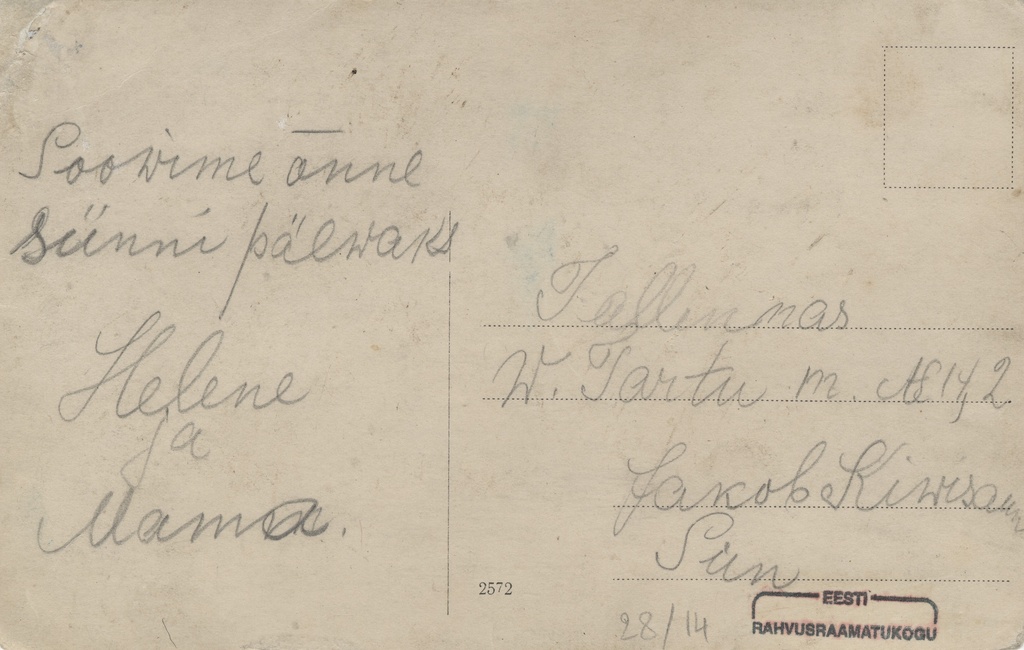 Soowime õnne
sünni pälwaks
Helene
ja
Mama.
Tallinnas
W. Tartu m. № 14, 2
Jakob Kiwisaun
Siin
2572
28/14
EESTI
RAHVUSRAAMATUKOGU